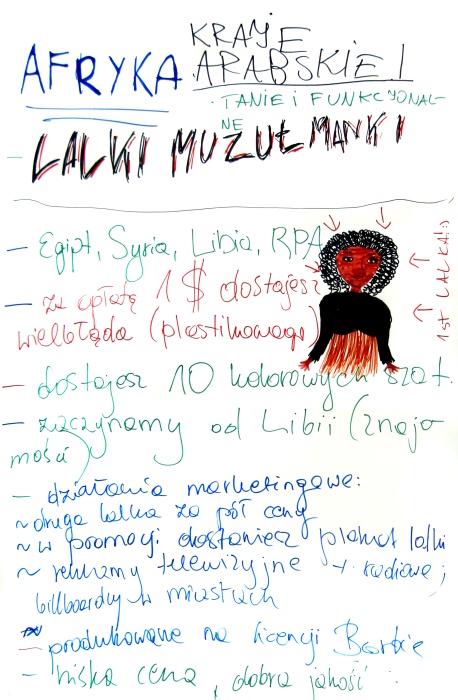 KRAJE
AFRYKA ARABSKIE!
· TANIE i FUNKCJONAL-
NE
- LALKI MUZUŁMANKI
- Egipt, Syria, Libia, RPA
- za opłatą 1$ dostajesz
wielbłąda (plastikowego)
1st LALKA :)
- dostajesz 10 kolorowych szat.
- zaczynamy od Libii (znajo-
mości)
- działania marketingowe:
~ druga lalka za pół ceny
~ w promocji dostaniesz plakat lalki
~ reklamy telewizyjne + radiowe;
billboardy w miastach
- produkowane na licencji Barbie
- niska cena, dobra jakość